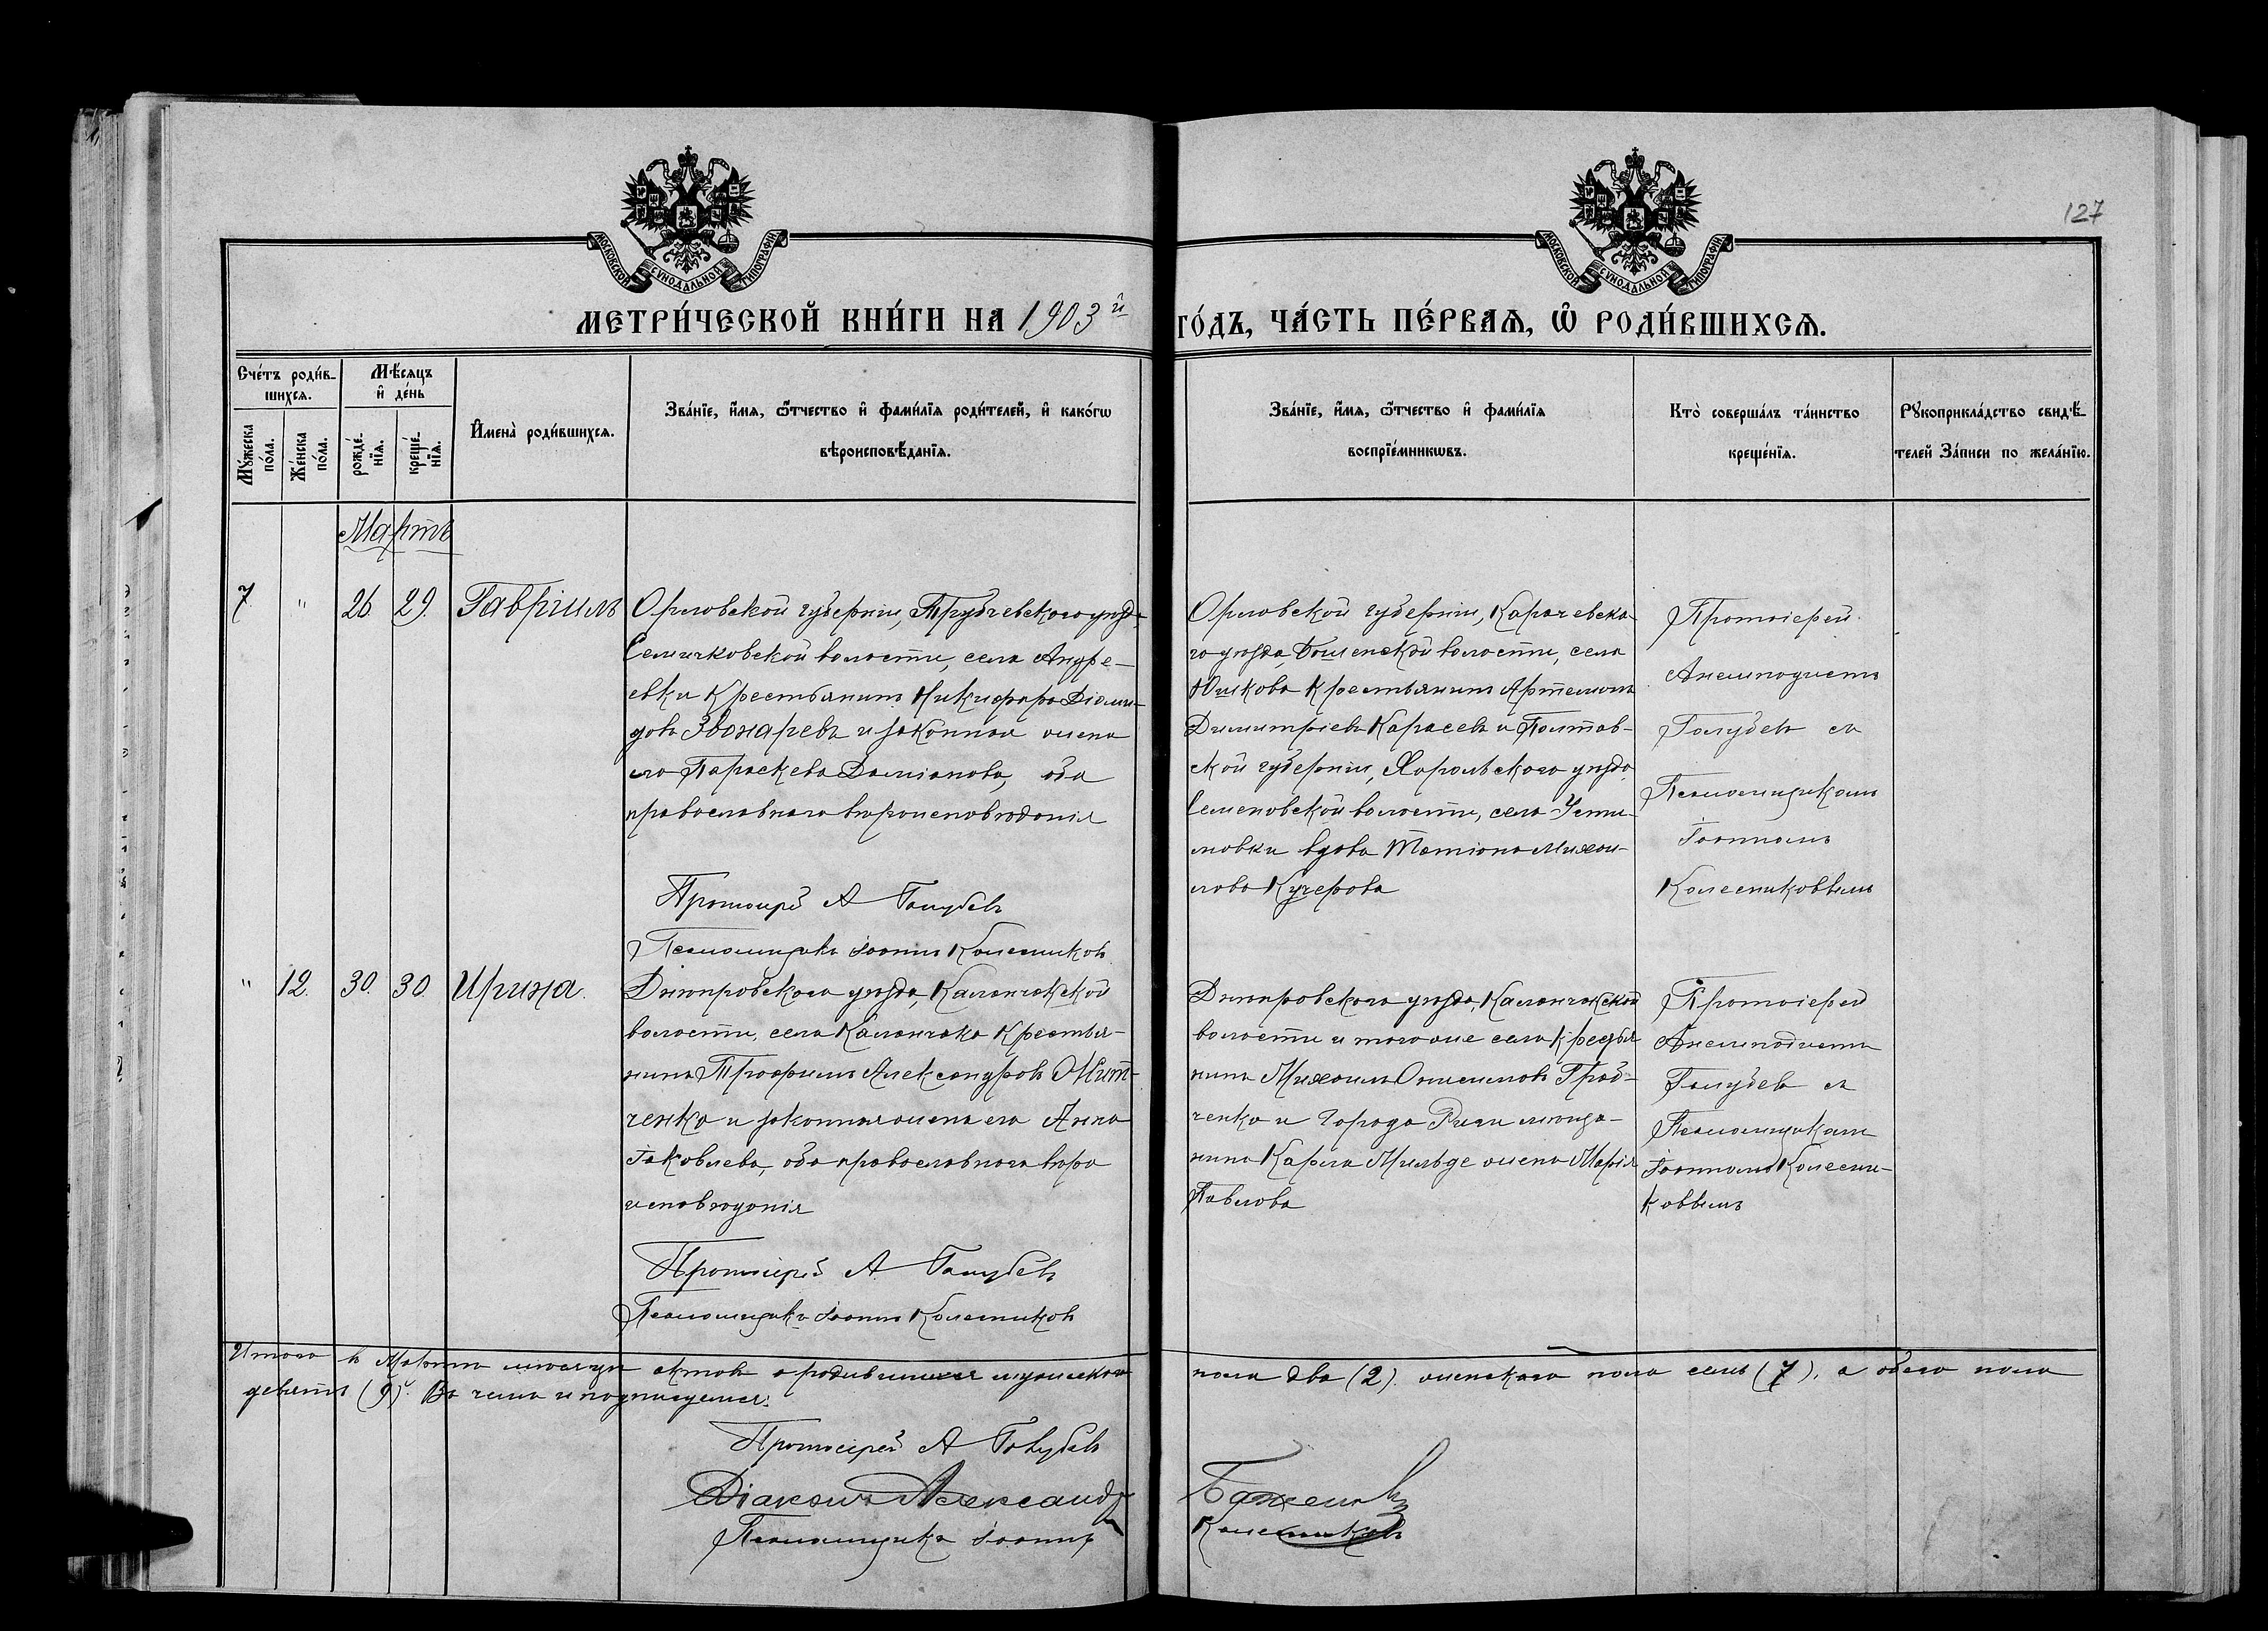 127
МОСКОВСКОЙ СѴНОДАЛЬНОЙ ТИПОГРАФІИ
МОСКОВСКОЙ СѴНОДАЛЬНОЙ ТИПОГРАФІИ
МЕТРИ́ЧЕСКОЙ КНИ́ГИ НА 1903 й
ГО́ДЪ, ЧА́СТЬ ПЕ́РВАѦ, Ѡ҆ РОДИ́ВШИХСѦ.
Сче́тъ роди́в-
шихсѧ.
Мѣ́сѧцъ
и҆ де́нь
Мꙋ́жеска
по́ла.
Же́нска
по́ла.
рожде́-
нїѧ.
креще́-
нїѧ.
И҆мена̀ роди́вшихсѧ.
Зва́нїе, и҆́мѧ, ѻ҆́тчество и҆ фами́лїѧ роди́телей, и҆ како́гѡ
вѣроисповѣ́данїѧ.
Зва́нїе, и҆́мѧ, ѻ҆́тчество и҆ фами́лїѧ
воспрїе́мникѡвъ.
Кто̀ соверша́лъ та́инство
креще́нїѧ.
Рꙋкоприкла́дство свидѣ́-
телей За́писи по жела́нїю.
Мартъ
7 " 26 29. Гавріилъ
Орловской губерніи, Трубчевского уѣзда
Селичковской волости, села Андре-
евки Крестьянинъ Никифоръ Діоми-
довъ Звонаревъ и законная жена
его Параскева Даміанова, оба
православнаго вѣроисповѣданія
Протоиерей А Голубевъ
Псаломщикъ Іоаннъ Колесниковъ
Орловской губерніи, Карачевска-
го уѣзда, волости, села
Юшкова Крестьянинъ Артемонъ
Димитріевъ Карасевъ и Полтав-
ской губерніи, Хорольскаго уѣзда
Семеновской волости, села Усти-
мовки вдова Татіана Михаи-
лова Кучерова
Протоіерей
Анемподистъ
Голубевъ съ
Псаломщикомъ
Іоанномъ
Колесниковымъ
" 12. 30. 30. Ирина.
Днѣпровскаго уѣзда, Каланчакской
волости, села Каланчака Крестья-
нинъ Трофимъ Александровъ Мит-
ченко и законная жена его Анна
Іаковлева, оба православнаго вѣро
исповѣданія
Протоиерей А. Голубевъ
Псаломщикъ Іоаннъ Колесниковъ
Днѣпровскаго уѣзда, Каланчакской
волости и того же села Крестья
нинъ Михаилъ Онисимовъ Граб-
ченко и города Риги мѣща-
нина Карла Мильде жена Марія
Павлова
Протоіерей
Анемподистъ
Голубевъ съ
Псаломщикомъ
Іоанномъ Колесни-
ковымъ
Итого въ Мартѣ мѣсяцѣ актовъ о родившихся мужескаго
пола два (2). женскаго пола семь (7), а обего пола
девять (9). Въ чемъ и подписуемся:
Протоиерей А Голубевъ
Діаконъ Александръ
Баженовъ
Псаломщикъ Іоаннъ
Колесниковъ